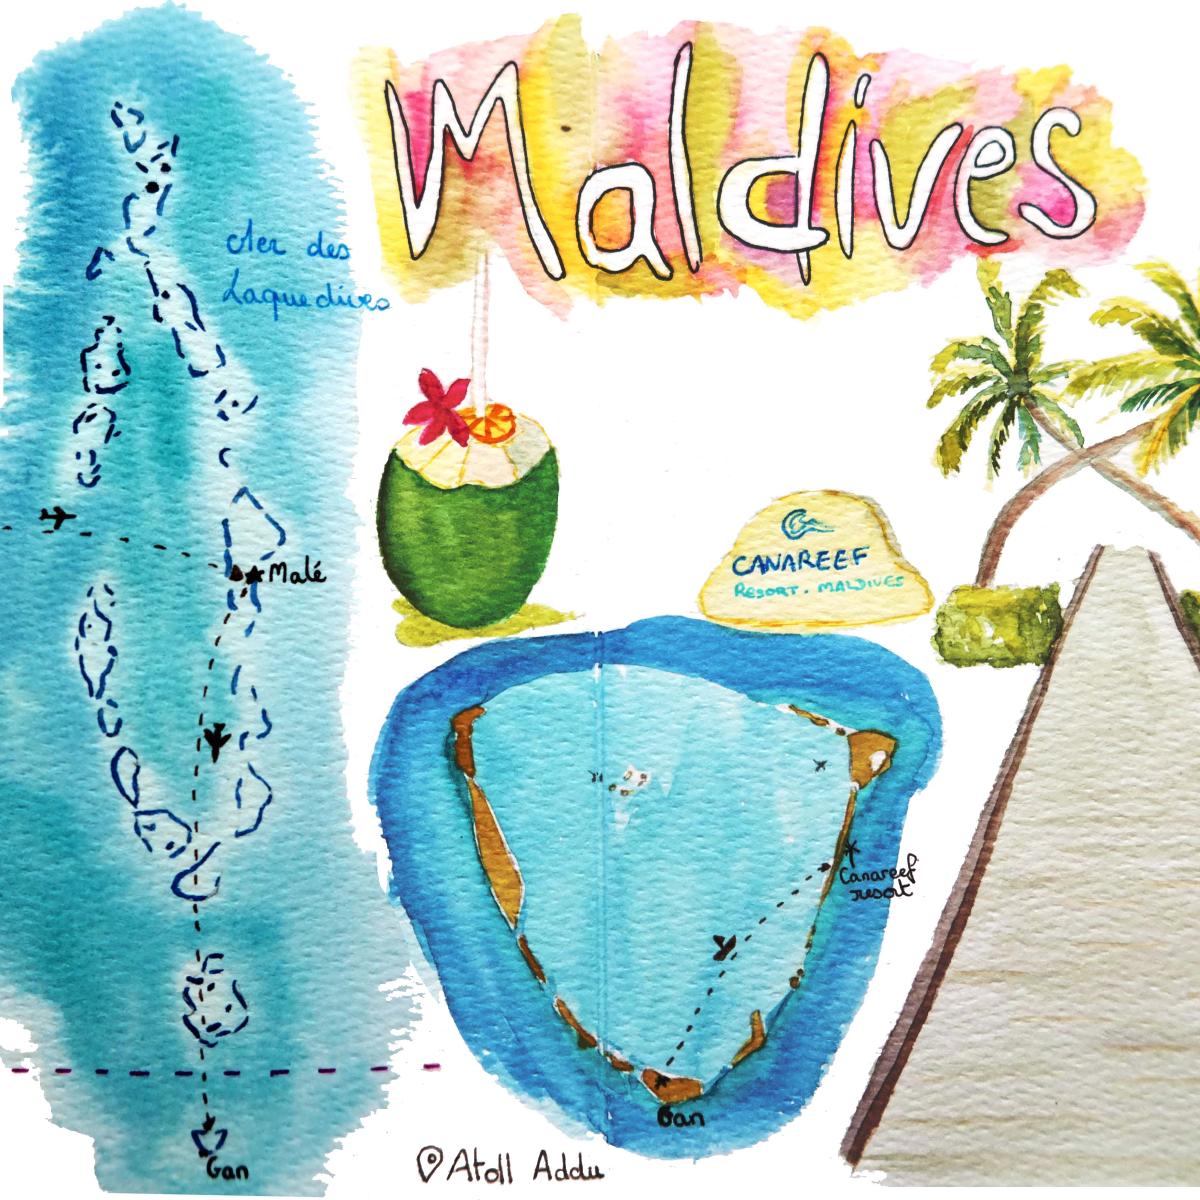 Maldives
Mer des
Laquedives
Malé
CANAREEF
RESORT. MALDIVES
Canareef
resort
Gan
Gan
Atoll Addu